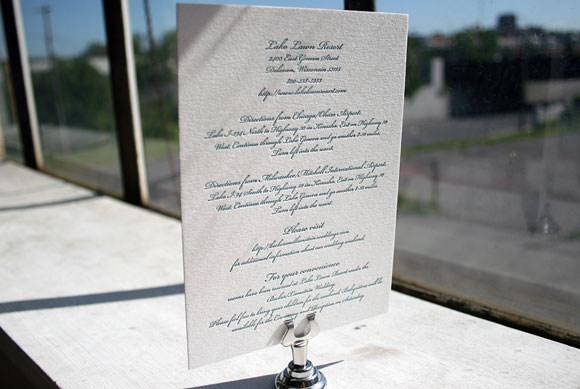 Lake Lawn Resort
2400 East Geneva Street
Delavan, Wisconsin 53115
http://www.lakelawnresort.com
Directions from Chicago/Ohare Airport:
Take I-294 North to Highway 50 in Kenosha. Exit on Highway 50
West. Continue through Lake Geneva and go another 8.30 miles.
Turn left into the resort.
Directions from Milwaukee/Mitchell International Airport:
Take I-94 South to Highway 50 in Kenosha. Exit on Highway 50
West. Continue through Lake Geneva and go another 8.30 miles.
Turn left into the resort.
Please visit
for additional information about our wedding weekend.
For your convenience
rooms have been reserved at Lake Lawn Resort under the
Wedding.
Please feel free to bring your children for the weekend. Babysitters will be
available for the Ceremony and Reception on Saturday.